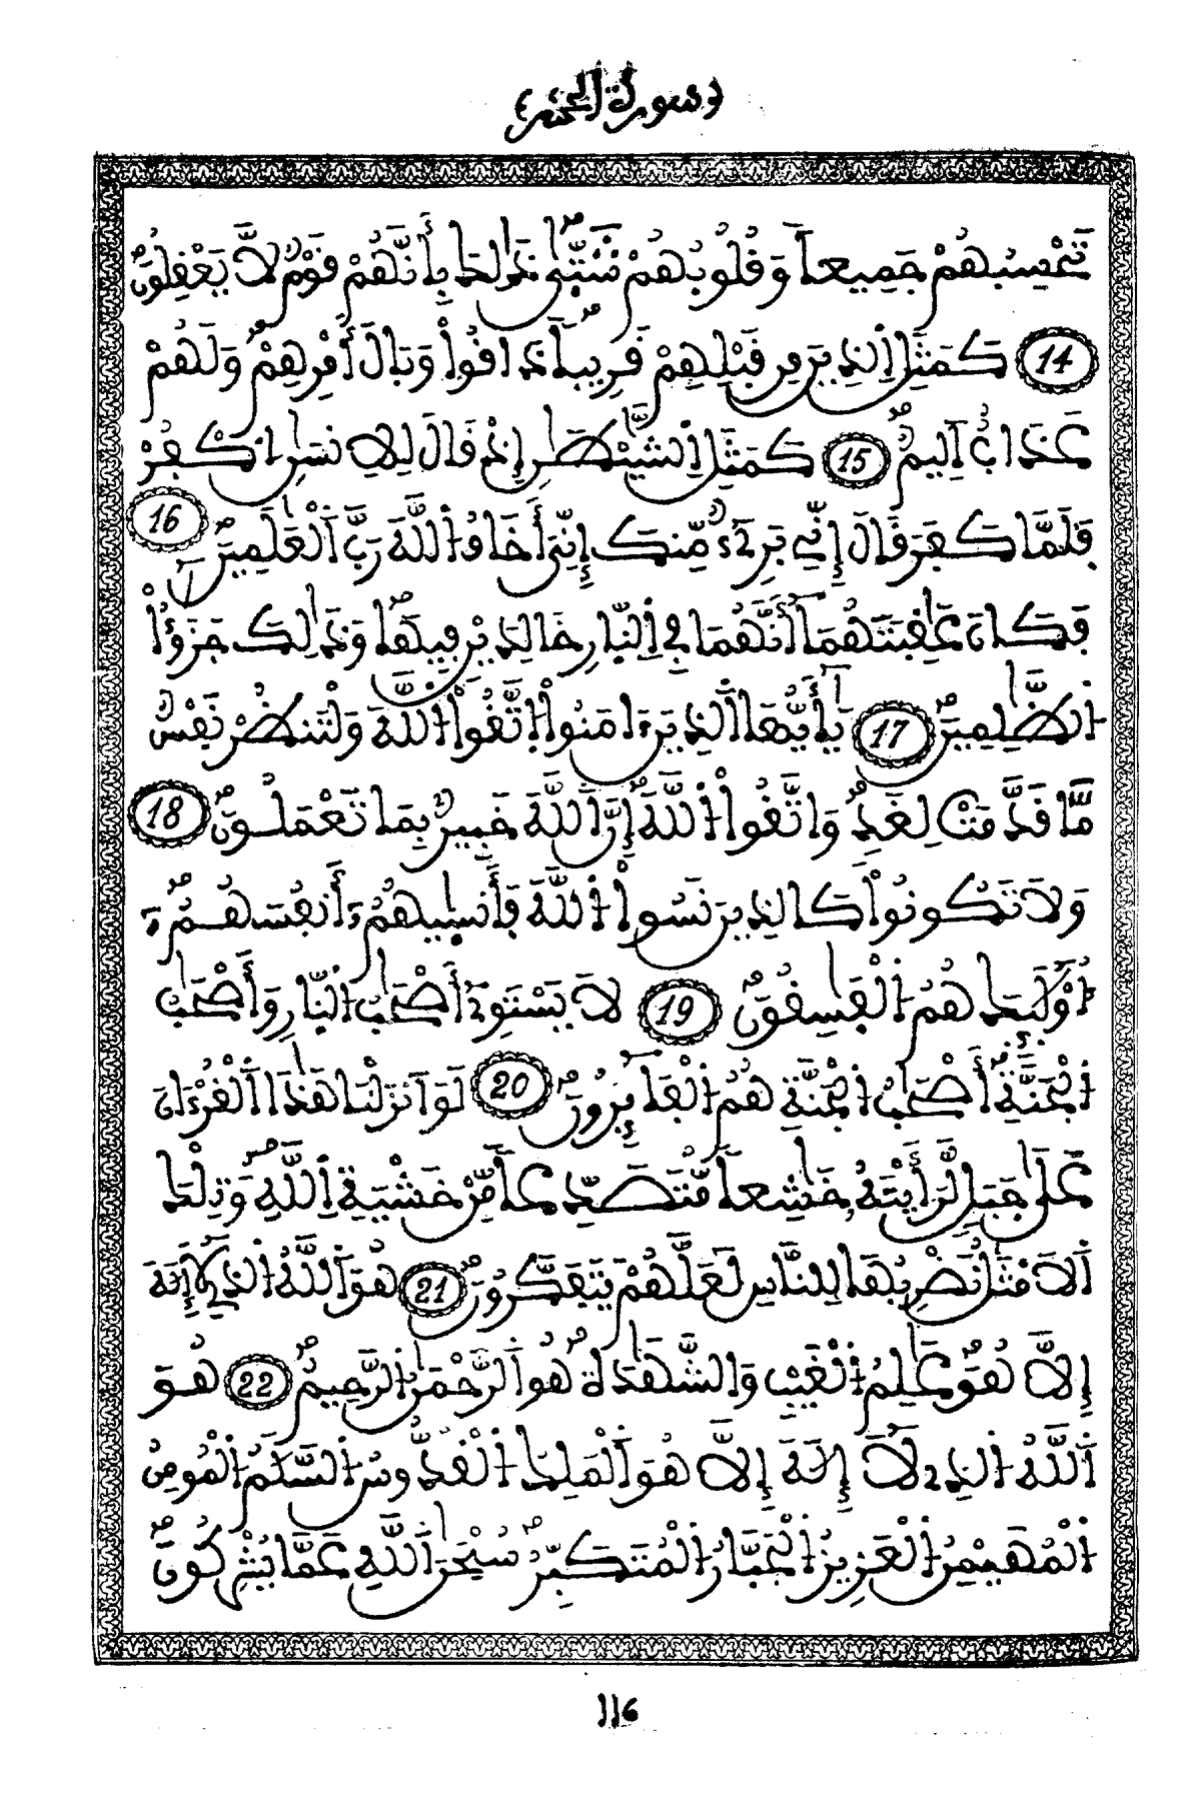 ﴿سورة الحشر﴾
تَحْسِبُهُمْ جَمِيعاً وَقُلُوبُهُمْ شَتّٜىٰ ذَٰلِكَ بِأَنَّهُمْ قَوْمٌ لَّا يَعْقِلُونَ
14 كَمَثَلِ اِ۬لذِينَ مِن قَبْلِهِمْ قَرِيباً ذَاقُواْ وَبَالَ أَمْرِهِمْ وَلَهُمْ
عَذَابٌ اَلِيمٌ 15 كَمَثَلِ اِ۬لشَّيْطَٰنِ إِذْ قَالَ لِلِانسَٰنِ اِ۟كْفُرْ
فَلَمَّا كَفَرَ قَالَ إِنِّے بَرِےٓءٌ مِّنكَ إِنِّيَ أَخَافُ اُ۬للَّهَ رَبَّ اَ۬لْعَٰلَمِينَ 16
فَكَانَ عَٰقِبَتَهُمَآ أَنَّهُمَا فِے اِ۬لنّ۪ارِ خَٰلِدَيْنِ فِيهَا وَذَٰلِكَ جَزَٰٓؤُاْ
اُ۬لظَّٰلِمِينَ 17 يَٰٓأَيُّهَا اَ۬لذِينَ ءَامَنُواْ اُ۪تَّقُواْ اُ۬للَّهَ وَلْتَنظُرْ نَفْسٌ
مَّا قَدَّمَتْ لِغَدٍ وَاتَّقُواْ اُ۬للَّهَ إِنَّ اَ۬للَّهَ خَبِيرٌ بِمَا تَعْمَلُونَ 18
وَلَا تَكُونُواْ كَالذِينَ نَسُواْ اُ۬للَّهَ فَأَنس۪يٰهُمُۥٓ أَنفُسَهُمُۥٓ
أُوْلَٰٓئِكَ هُمُ اُ۬لْفَٰسِقُونَ 19 لَا يَسْتَوِےٓ أَصْحَٰبُ اُ۬لنّ۪ارِ وَأَصْحَٰبُ
اُ۬لْجَنَّةِ أَصْحَٰبُ اُ۬لْجَنَّةِ هُمُ اُ۬لْفَآئِزُونَ 20 لَوَ اَنزَلْنَا هَٰذَا اَ۬لْقُرْءَانَ
عَلَىٰ جَبَلٍ لَّرَأَيْتَهُۥ خَٰشِعاً مُّتَصَدِّعاً مِّنْ خَشْيَةِ اِ۬للَّهِ وَتِلْكَ
اَ۬لَامْثَٰلُ نَضْرِبُهَا لِلنَّاسِ لَعَلَّهُمْ يَتَفَكَّرُونَ 21 هُوَ اَ۬للَّهُ اُ۬لذِے لَآ إِلَٰهَ
إِلَّا هُوَ عَٰلِمُ اُ۬لْغَيْبِ وَالشَّهَٰدَةِ هُوَ اَ۬لرَّحْمَٰنُ اُ۬لرَّحِيمُ 22 هُوَ
اَ۬للَّهُ اُ۬لذِے لَآ إِلَٰهَ إِلَّا هُوَ اَ۬لْمَلِكُ اُ۬لْقُدُّوسُ اُ۬لسَّلَٰمُ اُ۬لْمُومِنُ
اُ۬لْمُهَيْمِنُ اُ۬لْعَزِيزُ اُ۬لْجَبَّارُ اُ۬لْمُتَكَبِّرُ سُبْحَٰنَ اَ۬للَّهِ عَمَّا يُشْرِكُونَ
116